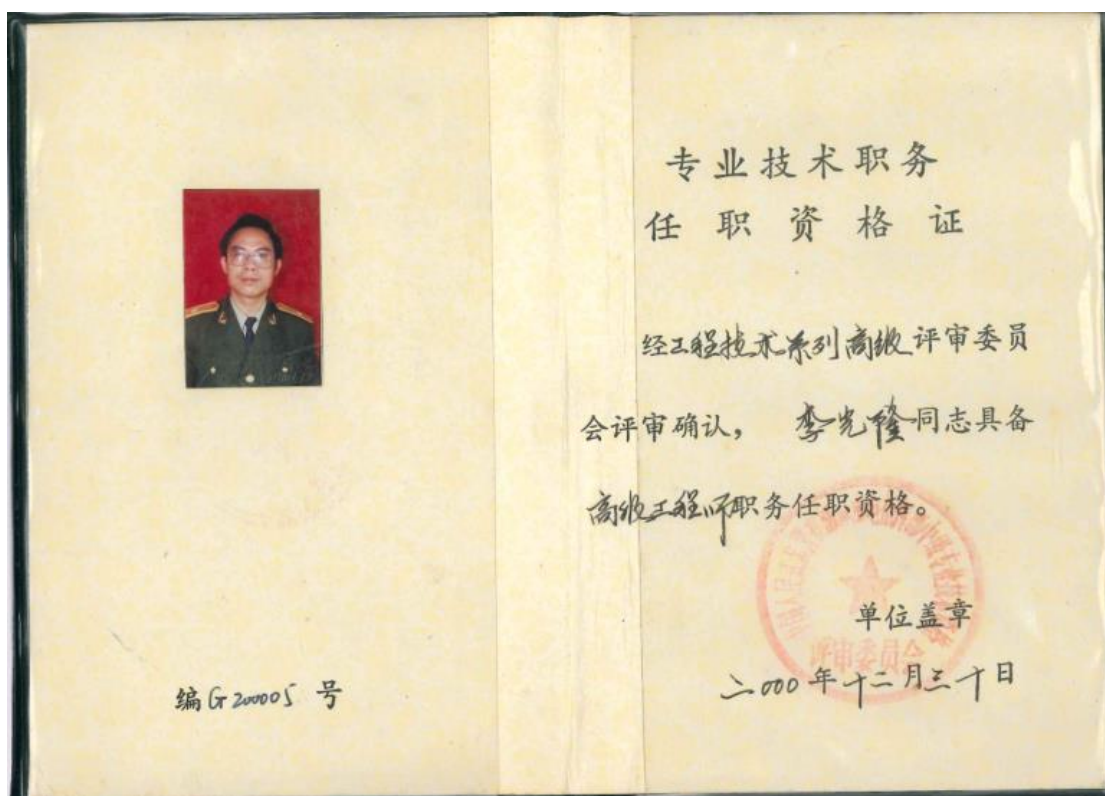 编G200005号
专业技术职务
任职资格证
经工程技术系列高级评审委员
会评审确认，李光隆同志具备
高级工程师职务任职资格。
单位盖章
二000年十二月三十日
评审委员会